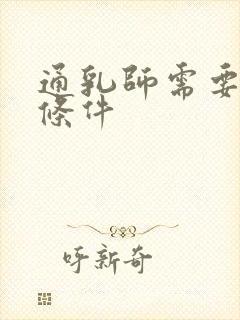 通乳師需要
條件
吁新奇